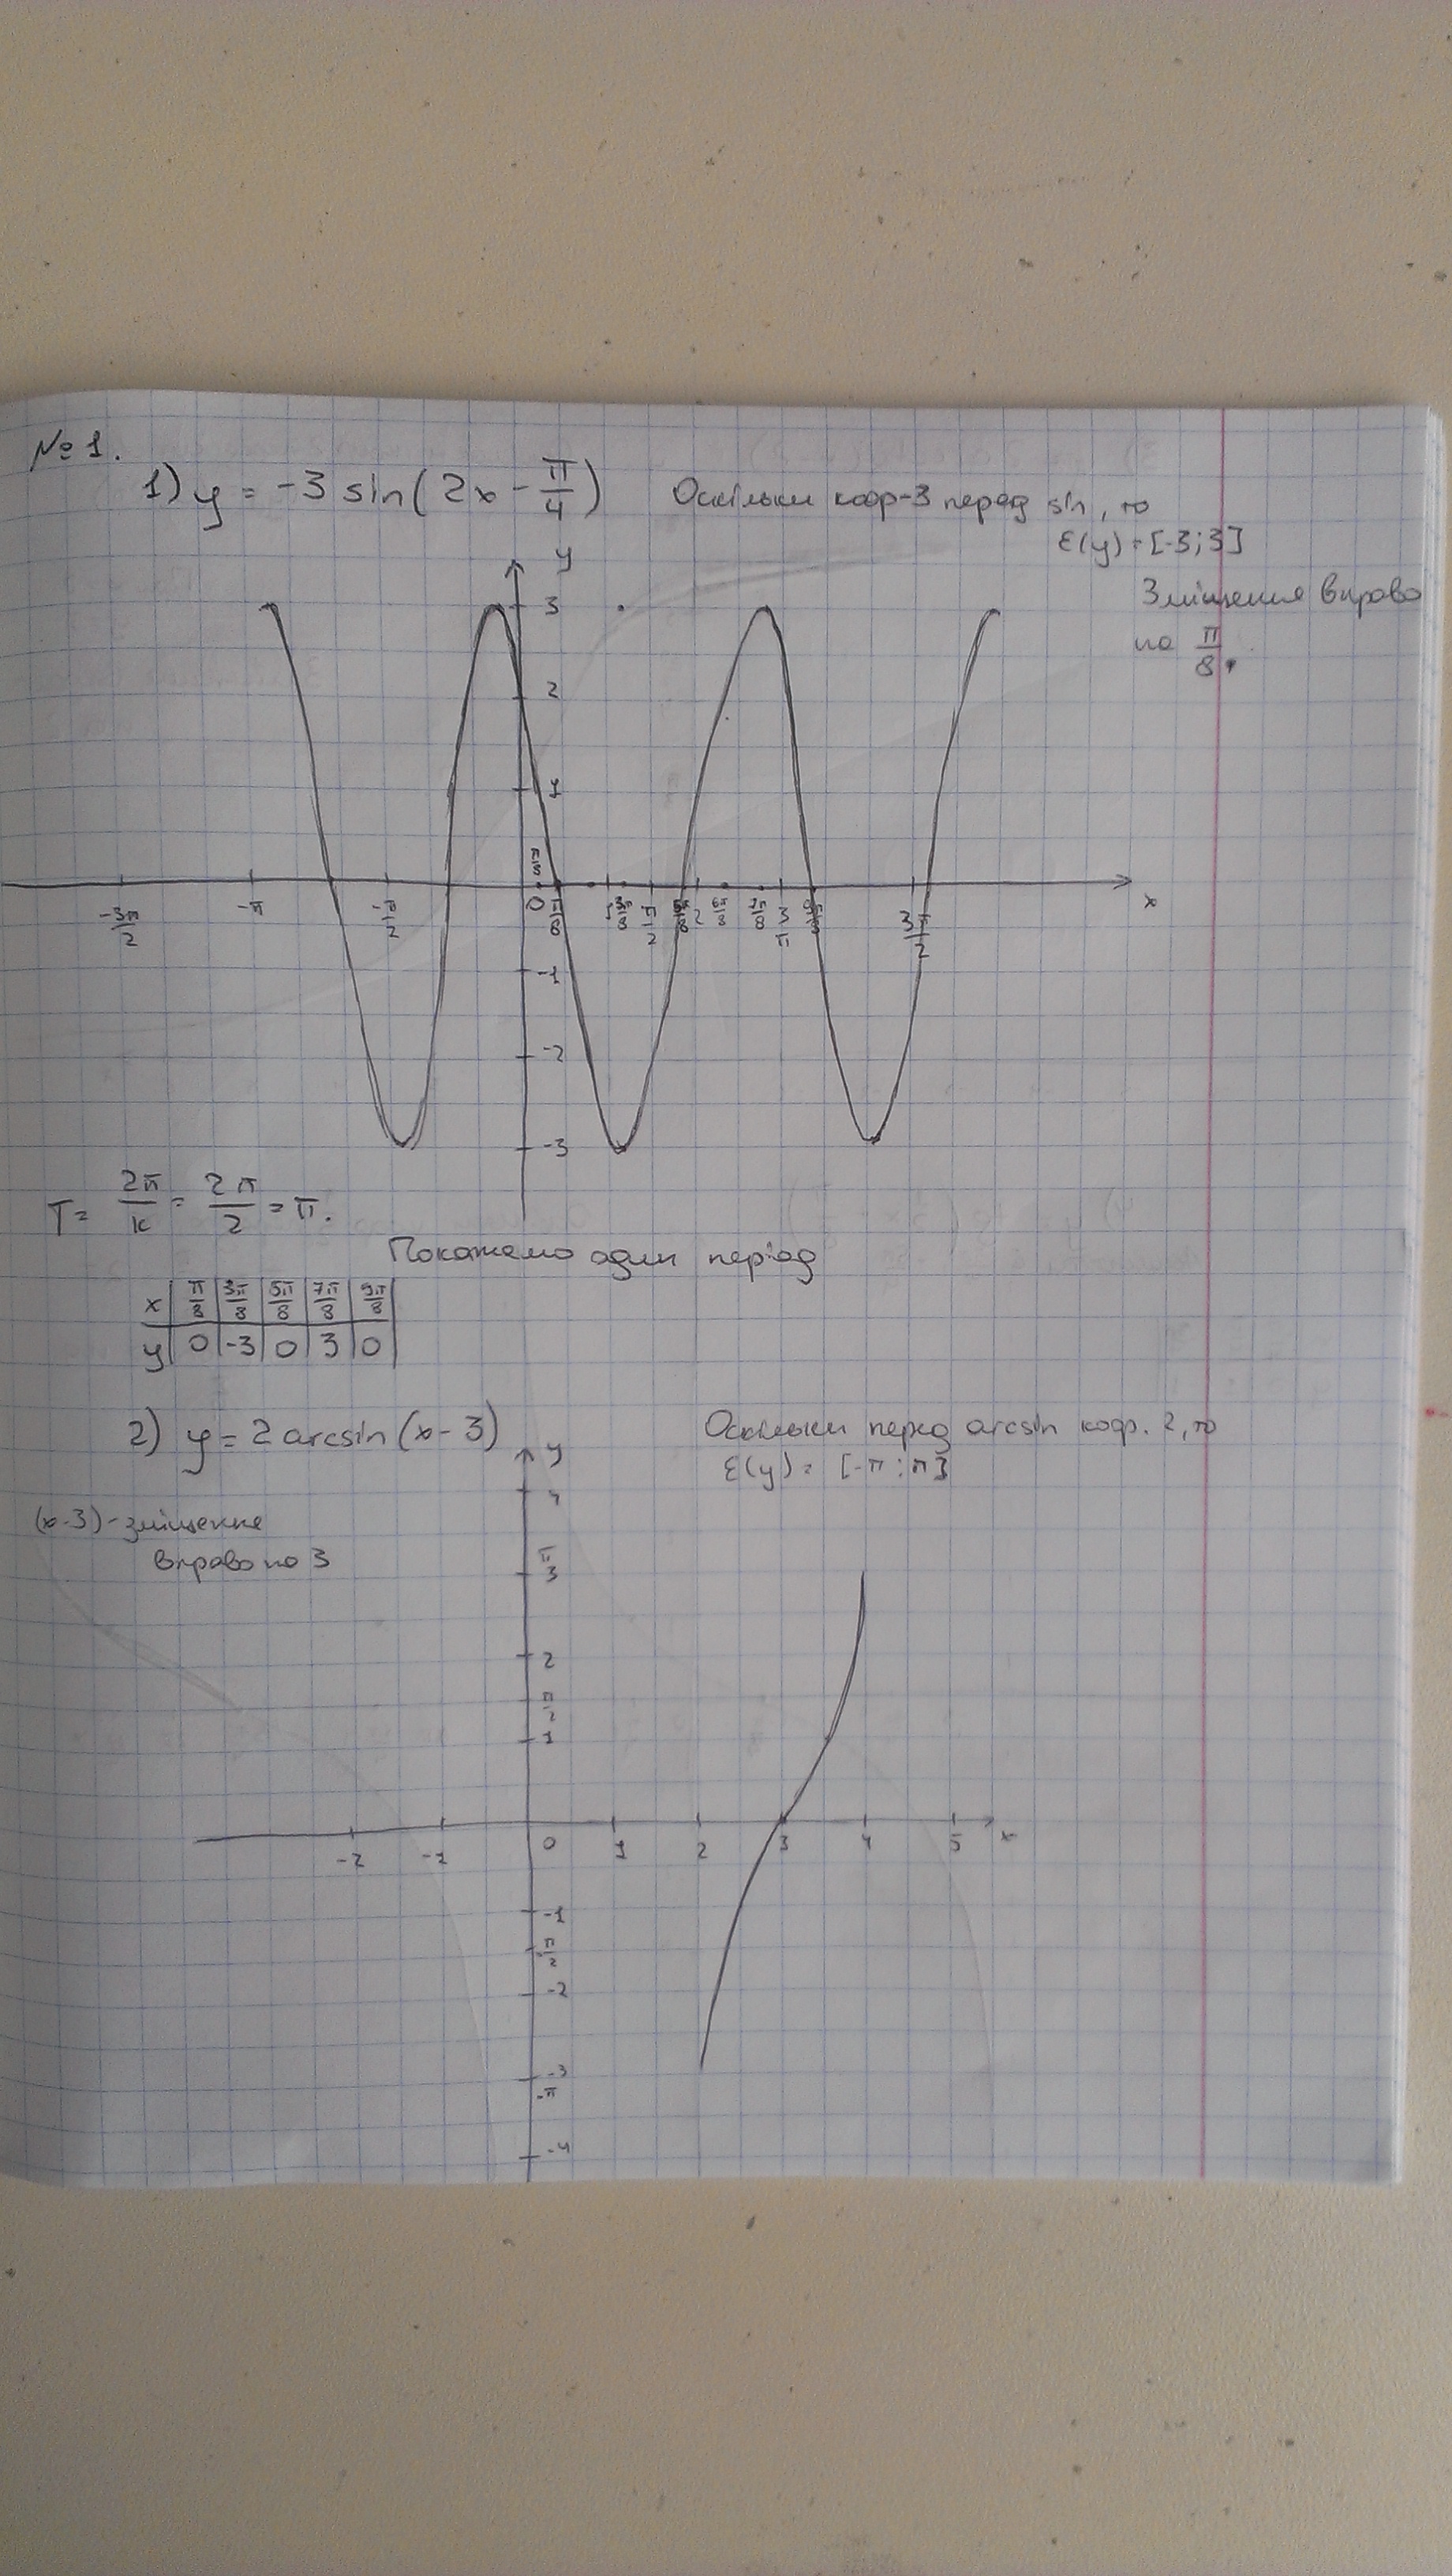 № 1.
1) y = -3 sin(2x - π/4) Оскільки коеф -3 перед sin, то
E(y) = [-3; 3]
Зміщення вправо
на π/8.
y
3
2
1
π/8
-3π/2 -π -π/2 0 π/8 3π/8 π/2 5π/8 2 6π/8 7π/8 3 π 9π/8 3π/2 x
-1
-2
-3
T = 2π/k = 2π/2 = π.
Покажемо один період
x | π/8 | 3π/8 | 5π/8 | 7π/8 | 9π/8
y | 0 | -3 | 0 | 3 | 0
2) y = 2 arcsin(x - 3) Оскільки перед arcsin коеф. 2, то
E(y) = [-π; π]
(x-3) - зміщення
вправо на 3
y
4
π
3
2
π/2
1
-2 -1 0 1 2 3 4 5 x
-1
-π/2
-2
-3
-π
-4